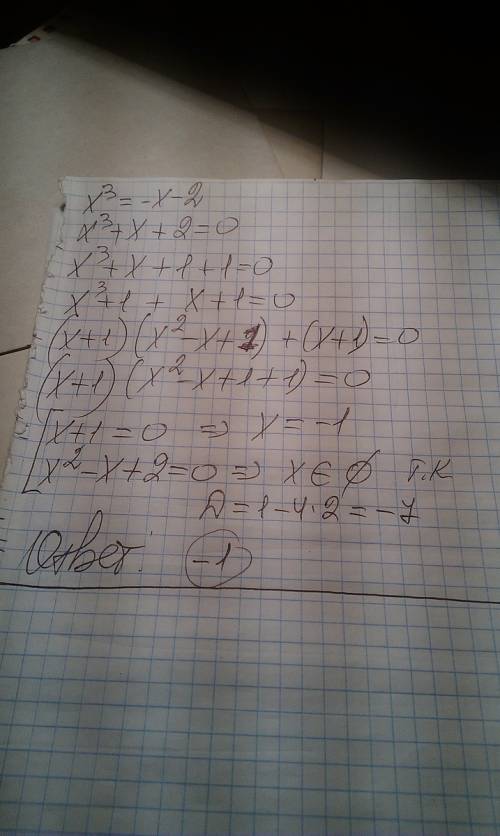 x³ = -x - 2
x³ + x + 2 = 0
x³ + x + 1 + 1 = 0
x³ + 1 + x + 1 = 0
(x+1) (x² - x + 1) + (x+1) = 0
(x+1) (x² - x + 1 + 1) = 0
[ x + 1 = 0 ⇒ x = -1
x² - x + 2 = 0 ⇒ x ∈ ∅ т.к
D = 1 - 4·2 = -7
Ответ: -1